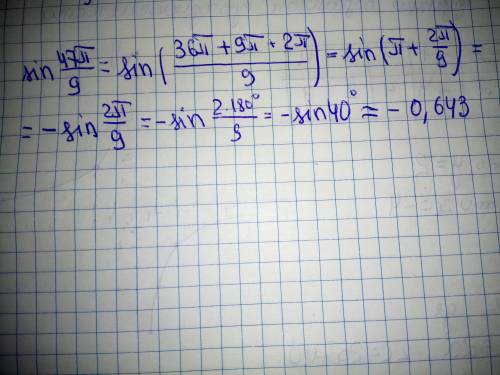 sin 47π/9 = sin( (36π + 9π + 2π)/9 ) = sin(π + 2π/9) =
= - sin 2π/9 = - sin 2·180°/9 = - sin40° ≈ - 0,643